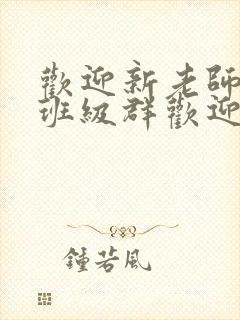 歡迎新老師
班級群歡迎
鍾若風